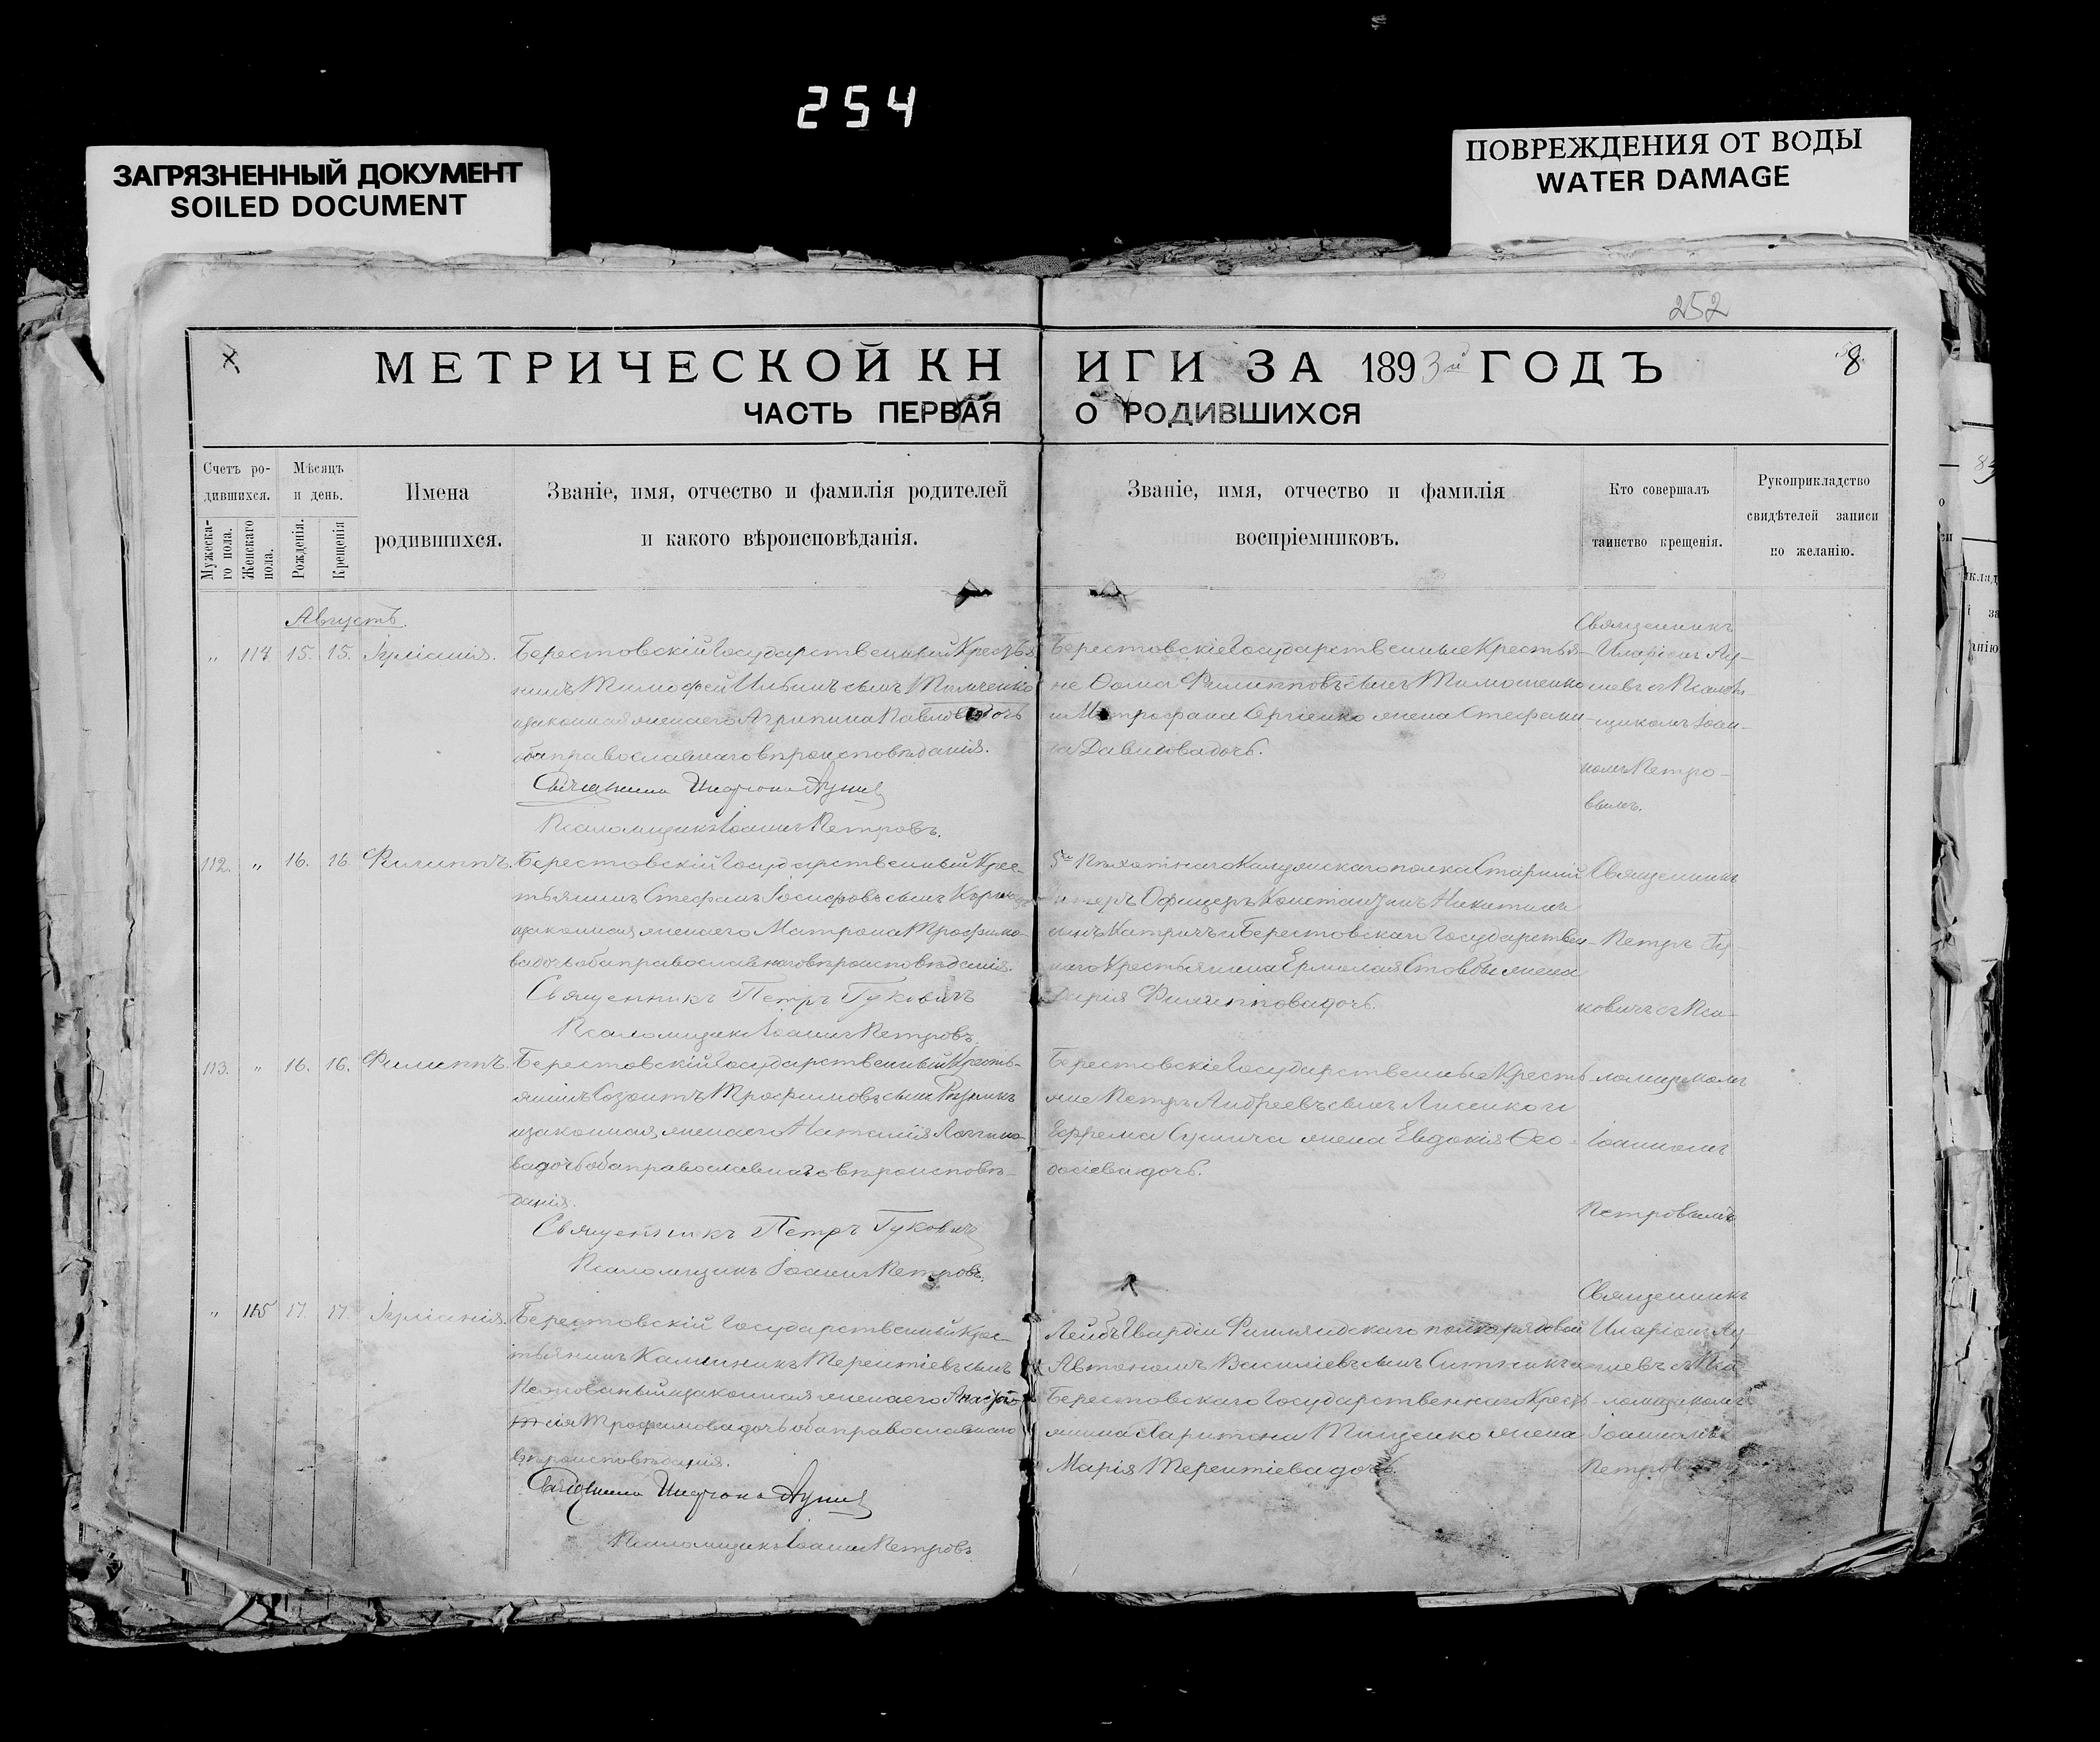 254
ЗАГРЯЗНЕННЫЙ ДОКУМЕНТ
SOILED DOCUMENT
ПОВРЕЖДЕНИЯ ОТ ВОДЫ
WATER DAMAGE
252
МЕТРИЧЕСКОЙ КНИГИ ЗА 1893й ГОДЪ
8
ЧАСТЬ ПЕРВАЯ О РОДИВШИХСЯ
Счетъ ро-
дившихся.
Мужеска-
го пола.
Женскаго
пола.
Мѣсяцъ
и день.
Рожденія.
Крещенія
Имена
родившихся.
Званіе, имя, отчество и фамилія родителей
и какого вѣроисповѣданія.
Званіе, имя, отчество и фамилія
воспріемниковъ.
Кто совершалъ
таинство крещенія.
Рукоприкладство
свидѣтелей записи
по желанію.
Августъ.
„ 114 15. 15. Іуліанія.
Берестовскій Государственный Крестья
нинъ Тимофей Ильинъ сынъ
и законная жена его Агрипина Павлова дочь
оба православнаго вѣроисповѣданія.
Псаломщикъ Іоаннъ Петровъ.
Берестовскіе Государственные Крестья-
не Ѳома Филипповъ сынъ Тимошенко
и Митрофана Сергіенко жена Стефани-
да Давидова дочь.
Священникъ
Иларіонъ
Псалом-
щикомъ Іоан-
номъ Петро-
вымъ.
112. „ 16. 16 Филиппъ.
Берестовскій Государственный Крес-
тьянинъ Стефанъ Іосифовъ сынъ
и законная жена его Матрона Трофимо-
ва дочь оба православнаго вѣроисповѣданія.
Священникъ Петръ Гуковичъ
Псаломщикъ Іоаннъ Петровъ.
5го Пѣхотнаго Калужскаго полка Старшій
Унтеръ Офицеръ Константинъ Никитинъ
сынъ и Берестовскаго Государствен-
наго Крестьянина Ермолая жена
Дарія Филиппова дочь.
Священникъ
Петръ Гу-
ковичъ съ Пса-
ломщикомъ
Іоанномъ
Петровымъ
113. „ 16. 16. Филиппъ.
Берестовскій Государственный Кресть-
янинъ Созонтъ Трофимовъ сынъ
и законная жена его Наталія Логгино-
ва дочь оба православнаго вѣроисповѣ-
данія.
Священникъ Петръ Гуковичъ
Псаломщикъ Іоаннъ Петровъ.
Берестовскіе Государственные Кресть
яне Петръ Андреевъ сынъ Лисенко и
Ефрема жена Евдокія Ѳео-
досіева дочь.
„ 115 17. 17. Іуліанія.
Берестовскій Государственный Крес-
тьянинъ Каллиникъ Терентіевъ сынъ
и законная жена его
Трофимова дочь оба православнаго
вѣроисповѣданія.
Псаломщикъ Іоаннъ Петровъ
Лейбъ Гвардіи Финляндскаго полка рядовой
Автономъ Васильевъ сынъ Ситникъ и
Берестовскаго Государственнаго Кресть
янина Харитона Тищенко жена
Марія Терентіева дочь.
Священникъ
Иларіонъ
ломщикомъ
Іоанномъ